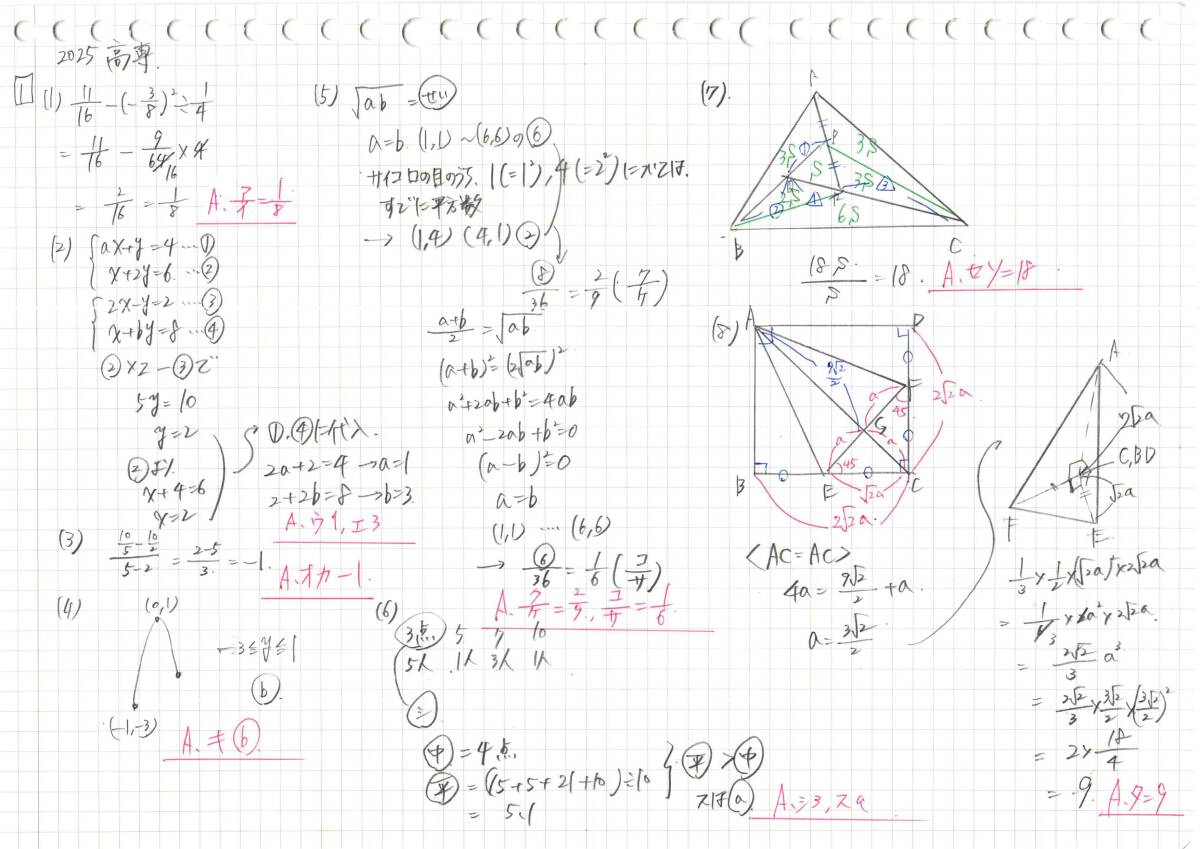 2025 高専.
1
(1) 11/16 - (-3/8)² ÷ 1/4
= 11/16 - 9/64 × 4
16
= 2/16 = 1/8
A. ア/イ = 1/8
(2) { ax+y=4 … ①
x+2y=6 … ②
{ 2x-y=2 … ③
x+by=8 … ④
②×2-③で
5y=10
y=2
②より
x+4=6
x=2
①、④に代入.
2a+2=4 → a=1
2+2b=8 → b=3.
A. ウ1, エ3
(3) (10/5 - 10/2)/(5-2) = (2-5)/3 = -1.
A. オカ -1.
(4)
(0,1)
-3≤y≤1
ⓑ
(-1,-3)
A. キ ⓑ
(5) √ab = せい
a=b. (1,1) ~ (6,6) の ⑥
サイコロの目のうち、1(=1²), 4(=2²)については
すでに平方数
→ (1,4) (4,1) ②
⑧/36 = 2/9 (ク/ケ)
(a+b)/2 = √ab
(a+b)² = (2√ab)²
a²+2ab+b²=4ab
a²-2ab+b²=0
(a-b)²=0
a=b
(1,1) …. (6,6)
→ ⑥/36 = 1/6 (コ/サ)
A. ク/ケ = 2/9, コ/サ = 1/6
(6)
3点 5 7 10
5人 1人 3人 1人
シ
中 = 4点
平 = (15+5+21+10)÷10
= 5.1
} 平 > 中
スは ⓐ
A. シ3, スa
(7).
A
P
3S ① 3S
S
3S ③
② 3S ④
R
6S
B
C
18S/S = 18.
A. セソ=18
(8)
A
D
9√2/2
a
F
45
2√2a
G
a
a
45
√2a
B
E
C
2√2a
<AC=AC>
4a = 9√2/2 + a.
a = 3√2/2
A
2√2a
C,B,D
√2a
F
E
1/3 × 1/2 × (√2a)² × 2√2a
= 1/3 × a² × 2√2a.
= 2√2/3 a³
= 2√2/3 × 3√2/2 × (3√2/2)²
= 2 × 18/4
= 9.
A. タ=9